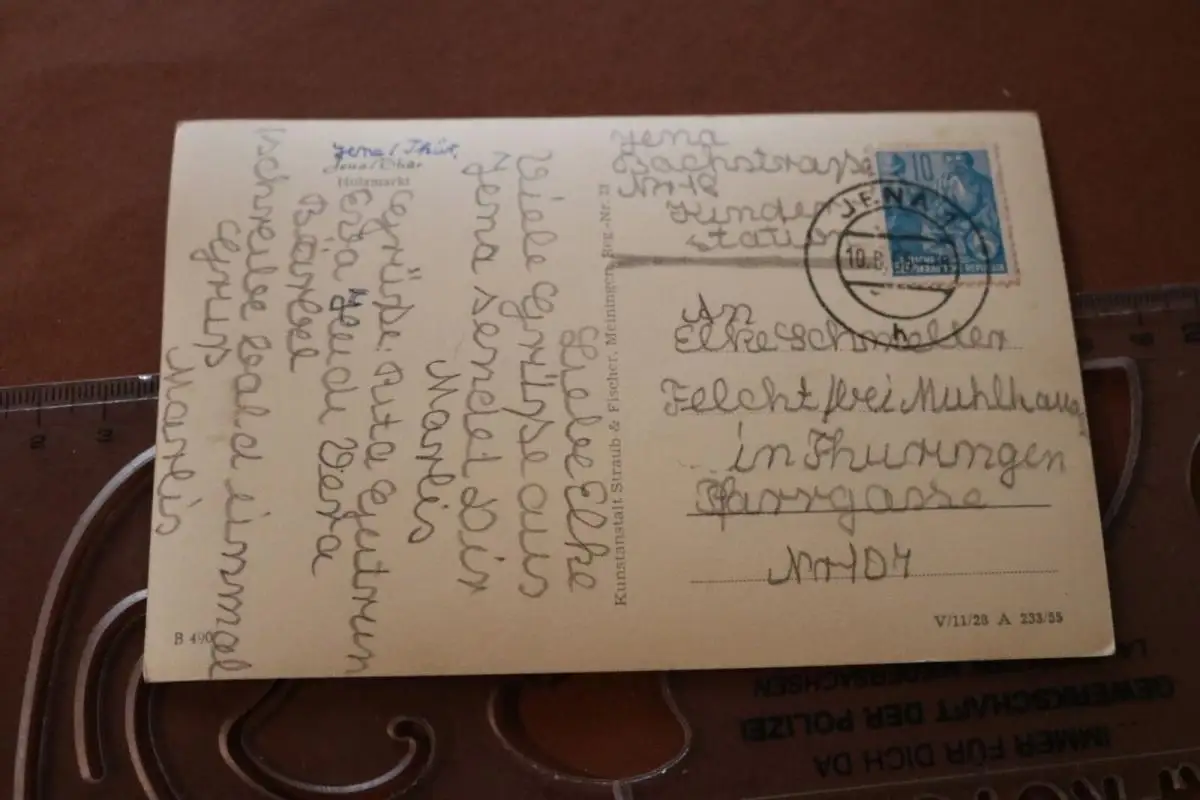 Jena / Thür.
Jena/Thür
Holzmarkt
Liebe Elke
Viele Grüße aus
Jena sendet Dir
Marlis
Grüße Rita Gutrun
Bärbel
schreibe bald einmal
Gruß
Marlis
B 490
Kunstanstalt Straub & Fischer, Meiningen, Reg.-Nr. II
Jena
Bachstrasse
Nr 18
Kinder
station
10
JENA 1
h
An
Elke Schmelter
Felcht/bei Muhlhaus
in Thuringen
Pfarrgasse
Nr 104
V/11/28 A 233/55
IMMER FÜR DICH DA
GEWERKSCHAFT DER POLIZEI
NIEDERSACHSEN